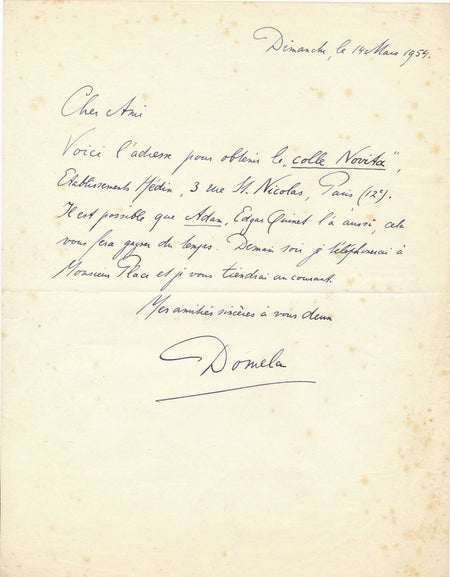 Dimanche, le 14 Mars 1954.
Cher Ami
Voici l'adresse pour obtenir le „colle Novita",
Etablissements Hédin, 3 rue St. Nicolas, Paris (12e).
Il est possible que Adam, Edgar Quinet l'à aussi, cela
vous fera gagner du temps. Demain soir je téléphonerai à
Monsieur Place et je vous tiendrai au courant.
Mes amitiés sincères à vous deux
Domela